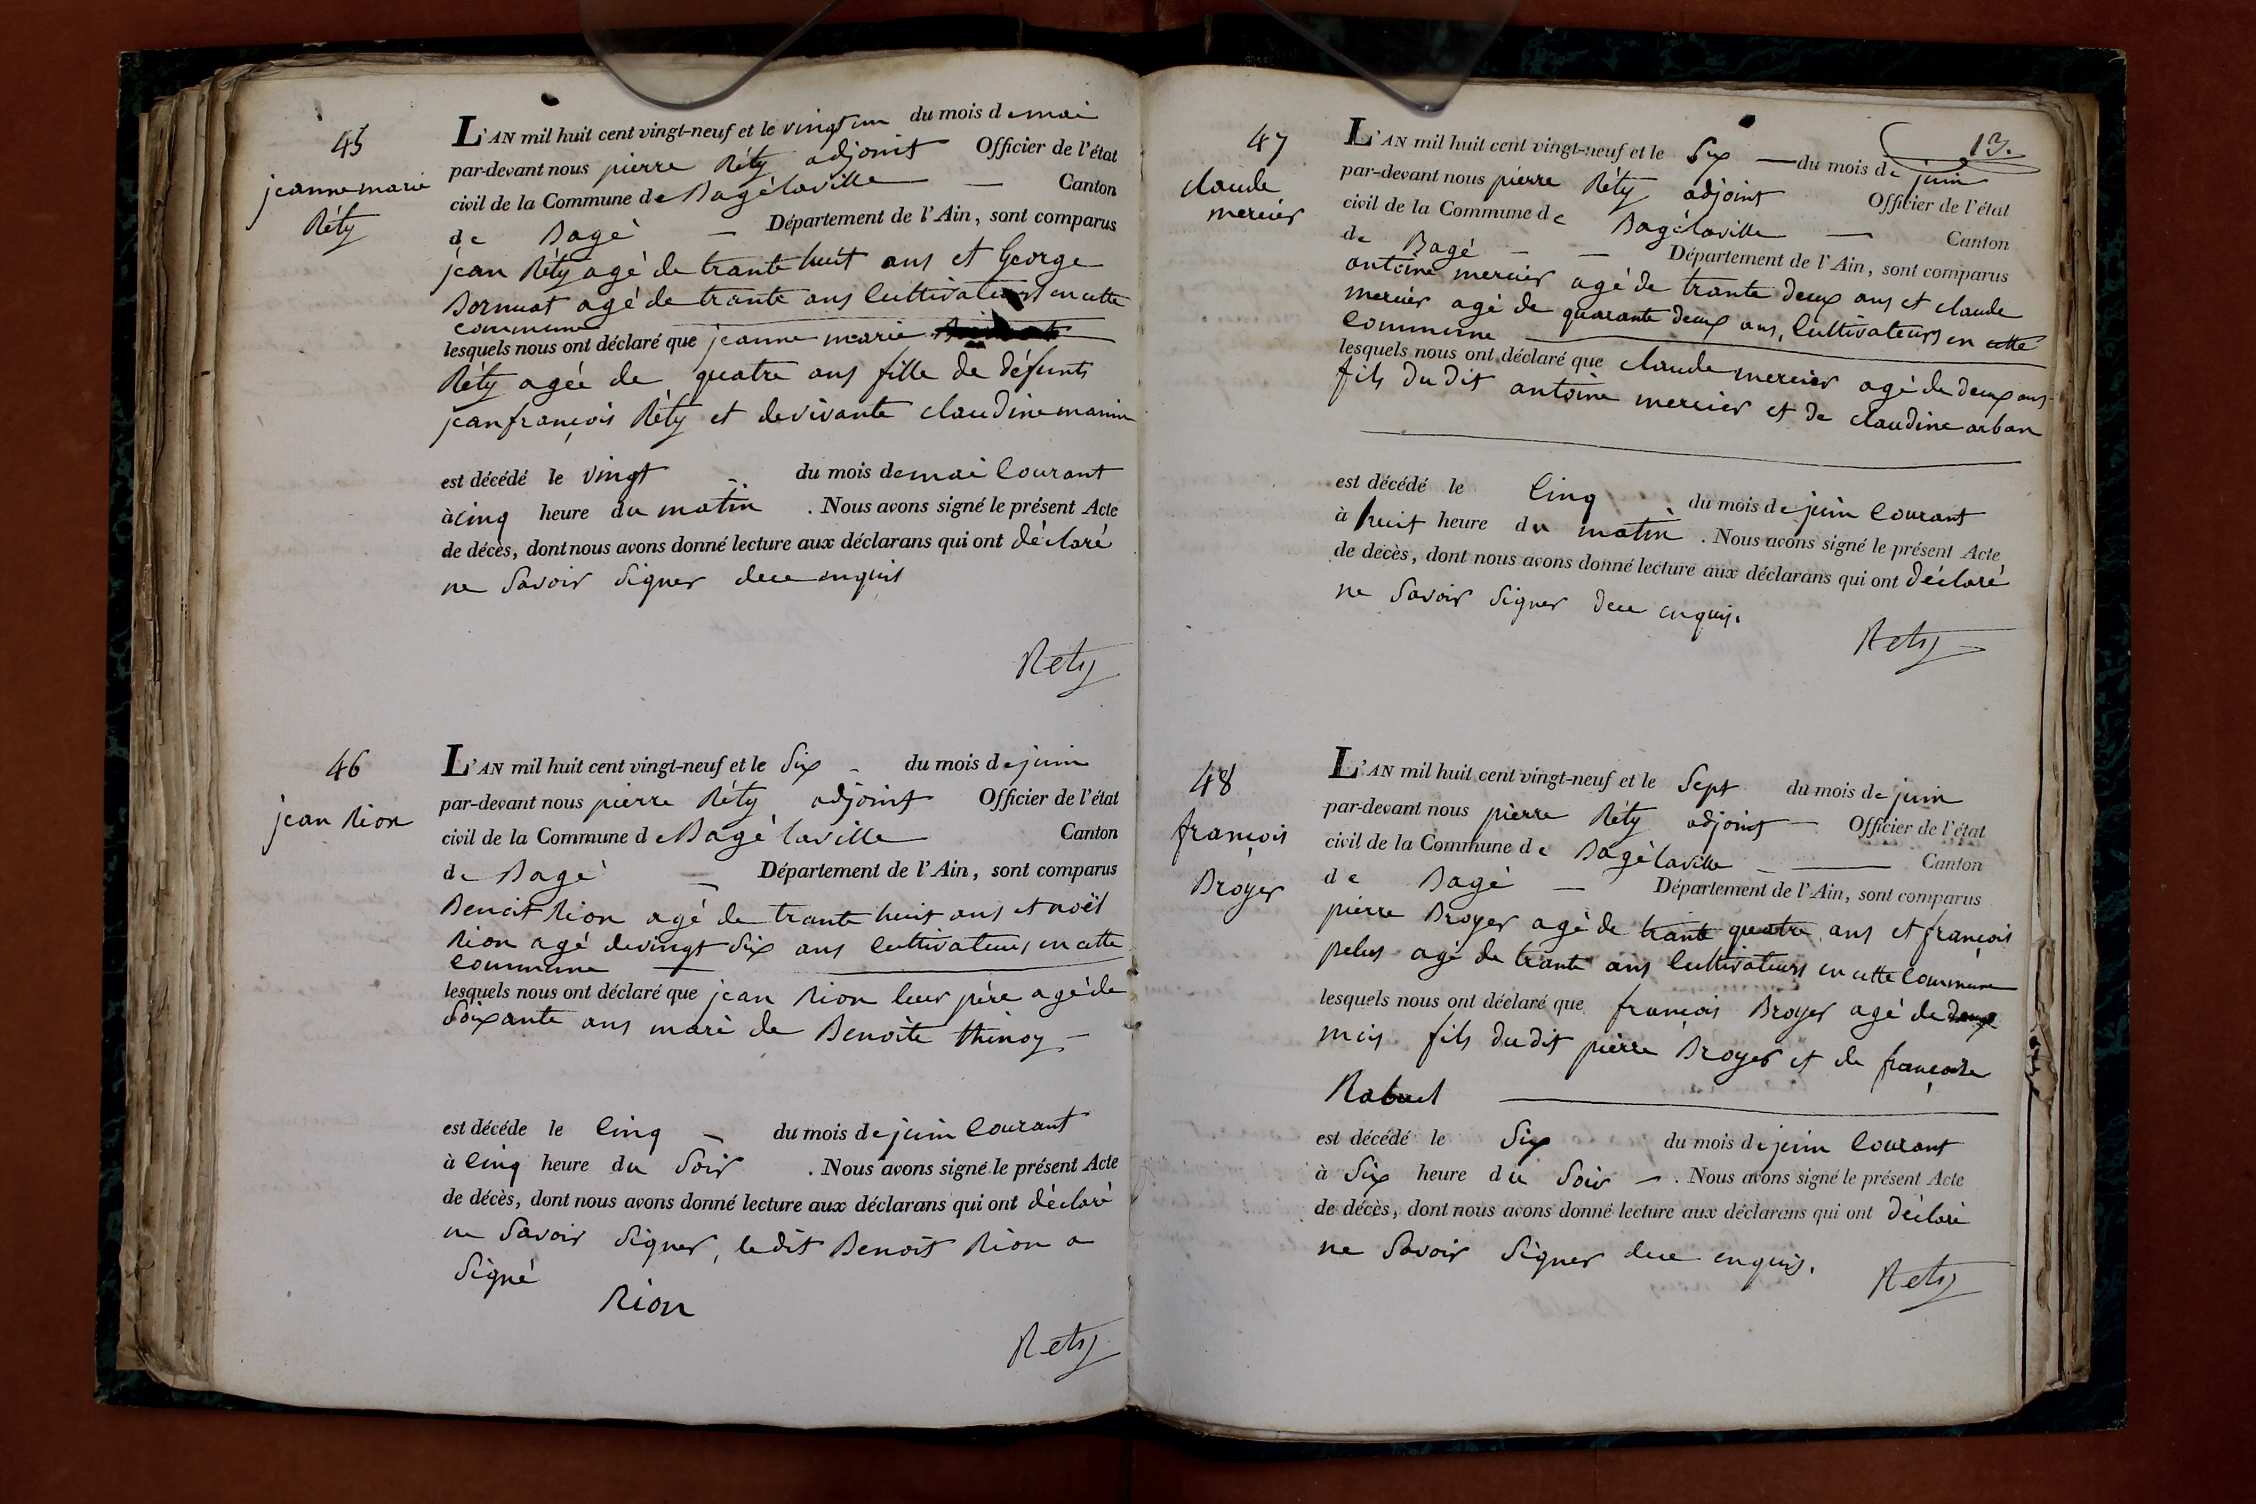 45
jeanne marie
Réty
L'AN mil huit cent vingt-neuf et le vingt un du mois de mai
par-devant nous pierre Réty adjoint Officier de l'état
civil de la Commune de Bagé laville — Canton
de Bagé — Département de l'Ain, sont comparus
jean Réty agé de trante huit ans et George
Bornuat agé de trante ans Cultivateurs en cette
commune
lesquels nous ont déclaré que jeanne marie
Réty agée de quatre ans fille de défunts
jean françois Réty et de vivante claudine manin
est décédé le vingt du mois de mai Courant
à cinq heure du matin . Nous avons signé le présent Acte
de décès, dont nous avons donné lecture aux déclarans qui ont déclaré
ne Savoir Signer de ce enquis
Rety
46
jean Rion
L'AN mil huit cent vingt-neuf et le Six du mois de juin
par-devant nous pierre Réty adjoint Officier de l'état
civil de la Commune de Bagé laville Canton
de Bagé — Département de l'Ain, sont comparus
Benoit Rion agé de trante huit ans et noël
Rion agé de vingt Six ans Cultivateurs en cette
Commune
lesquels nous ont déclaré que jean Rion leur père agé de
Soixante ans mari de Benoite thinoy
est décédé le Cinq du mois de juin Courant
à Cinq heure du Soir . Nous avons signé le présent Acte
de décès, dont nous avons donné lecture aux déclarans qui ont déclaré
ne Savoir Signer, le dit Benoit Rion a
Signé
Rion
Rety
13.
47
claude
mercier
L'AN mil huit cent vingt-neuf et le Six — du mois de juin
par-devant nous pierre Réty adjoint Officier de l'état
civil de la Commune de Bagé laville — Canton
de Bagé — — Département de l'Ain, sont comparus
antoine mercier agé de trante deux ans et claude
mercier agé de quarante deux ans, Cultivateurs en cette
Commune
lesquels nous ont déclaré que claude mercier agé de deux ans
fils du dit antoine mercier et de claudine arban
est décédé le Cinq du mois de juin Courant
à huit heure du matin . Nous avons signé le présent Acte
de décès, dont nous avons donné lecture aux déclarans qui ont déclaré
ne Savoir Signer de ce enquis.
Rety
48
françois
Broyer
L'AN mil huit cent vingt-neuf et le Sept du mois de juin
par-devant nous pierre Réty adjoint — Officier de l'état
civil de la Commune de Bagé laville — Canton
de Bagé — Département de l'Ain, sont comparus
pierre Broyer agé de trante quatre ans et françois
pelus agé de trante ans Cultivateurs en cette Commune
lesquels nous ont déclaré que françois Broyer agé de deux
mois fils du dit pierre Broyer et de françoise
Rabuel
est décédé le Six du mois de juin Courant
à Six heure du Soir — . Nous avons signé le présent Acte
de décès, dont nous avons donné lecture aux déclarans qui ont déclaré
ne Savoir Signer de ce enquis.
Rety